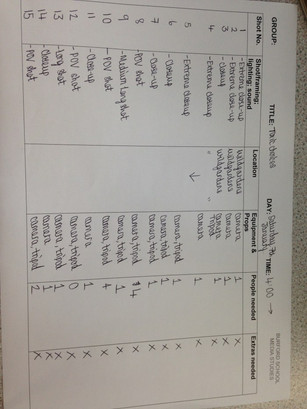 BURFORD SCHOOL
MEDIA STUDIES
GROUP: TITLE: DAY: Saturday 7th January TIME: 4:00 →
Shot No. Shot/framing; lighting; sound Location Equipment & Props People needed Extras needed
1 - Extreme close-up camera 1 X
2 - Extreme close-up camera 1 X
3 - close-up camera 1 X
4 - Extreme closeup Tripod 1 X
5 - Extreme closeup ↓ camera 1 X
6 - closeup camera, tripod 1 X
7 - Close-up camera, tripod 1 X
8 - POV shot camera, tripod 4 X
9 - Medium long shot camera, tripod 1 X
10 - POV shot camera, tripod 4 X
11 - Close-up camera 1 X
12 - POV shot camera, tripod 0 X
13 - Long shot camera, tripod 1 X
14 - Closeup camera, tripod 1 X
15 - POV shot camera, tripod 2 X